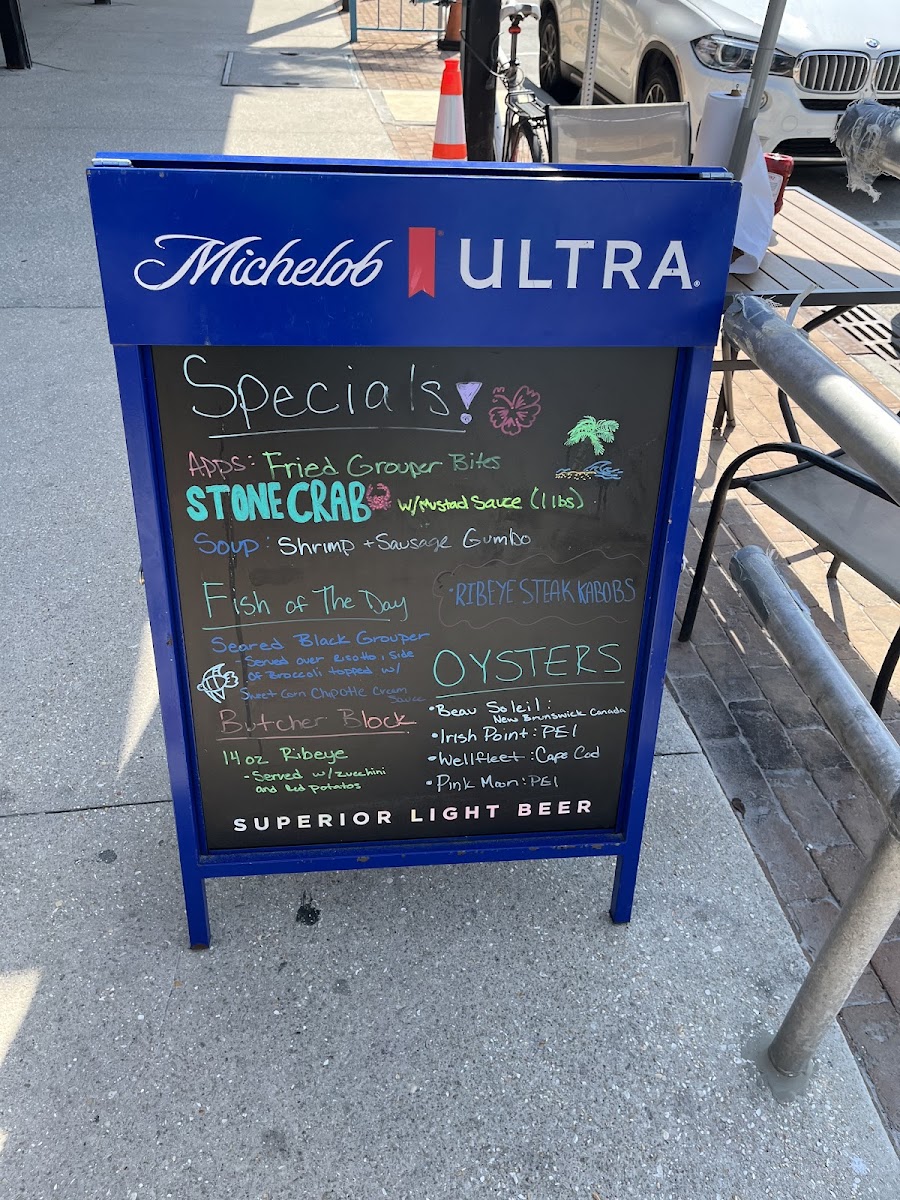 Michelob ULTRA®
Specials!
Apps: Fried Grouper Bites
STONE CRAB w/Mustad Sauce (1 lbs)
Soup: Shrimp + Sausage Gumbo
Fish of The Day
Seared Black Grouper
- Served over Risotto, Side
of Broccoli topped w/
Sweet Corn Chipotle Cream
Sauce
Butcher Block
14 oz Ribeye
- Served w/ zucchini
and Red potatos
• RIBEYE STEAK KABOBS
OYSTERS
• Beau Soleil:
New Brunswick Canada
• Irish Point: PEI
• Wellfleet: Cape Cod
• Pink Moon: PEI
SUPERIOR LIGHT BEER